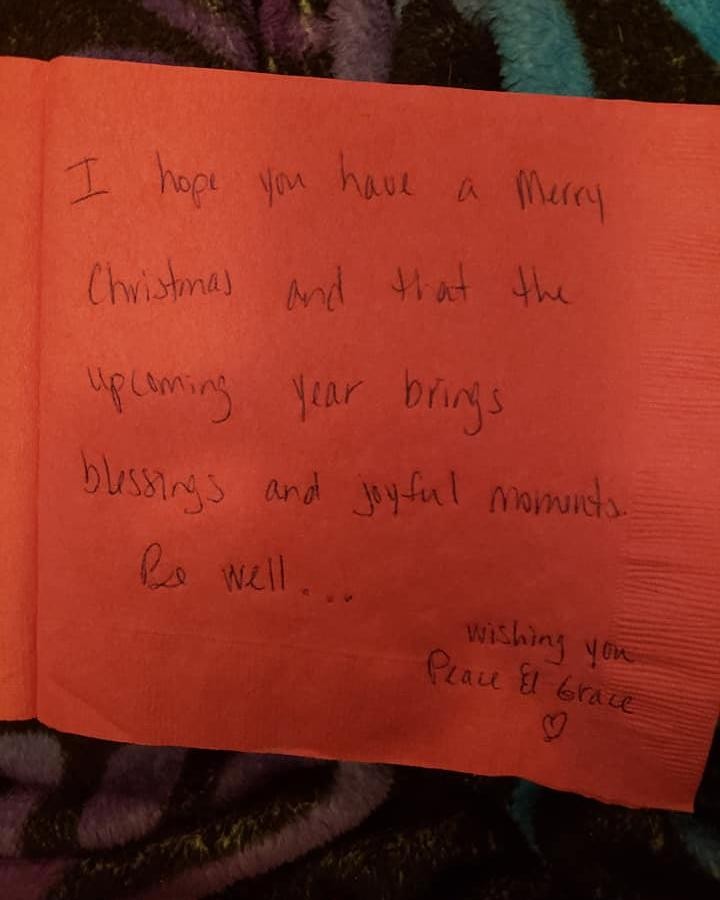 I hope you have a Merry
Christmas and that the
upcoming year brings
blessings and joyful moments.
Be well...
wishing you
Peace & Grace
♡